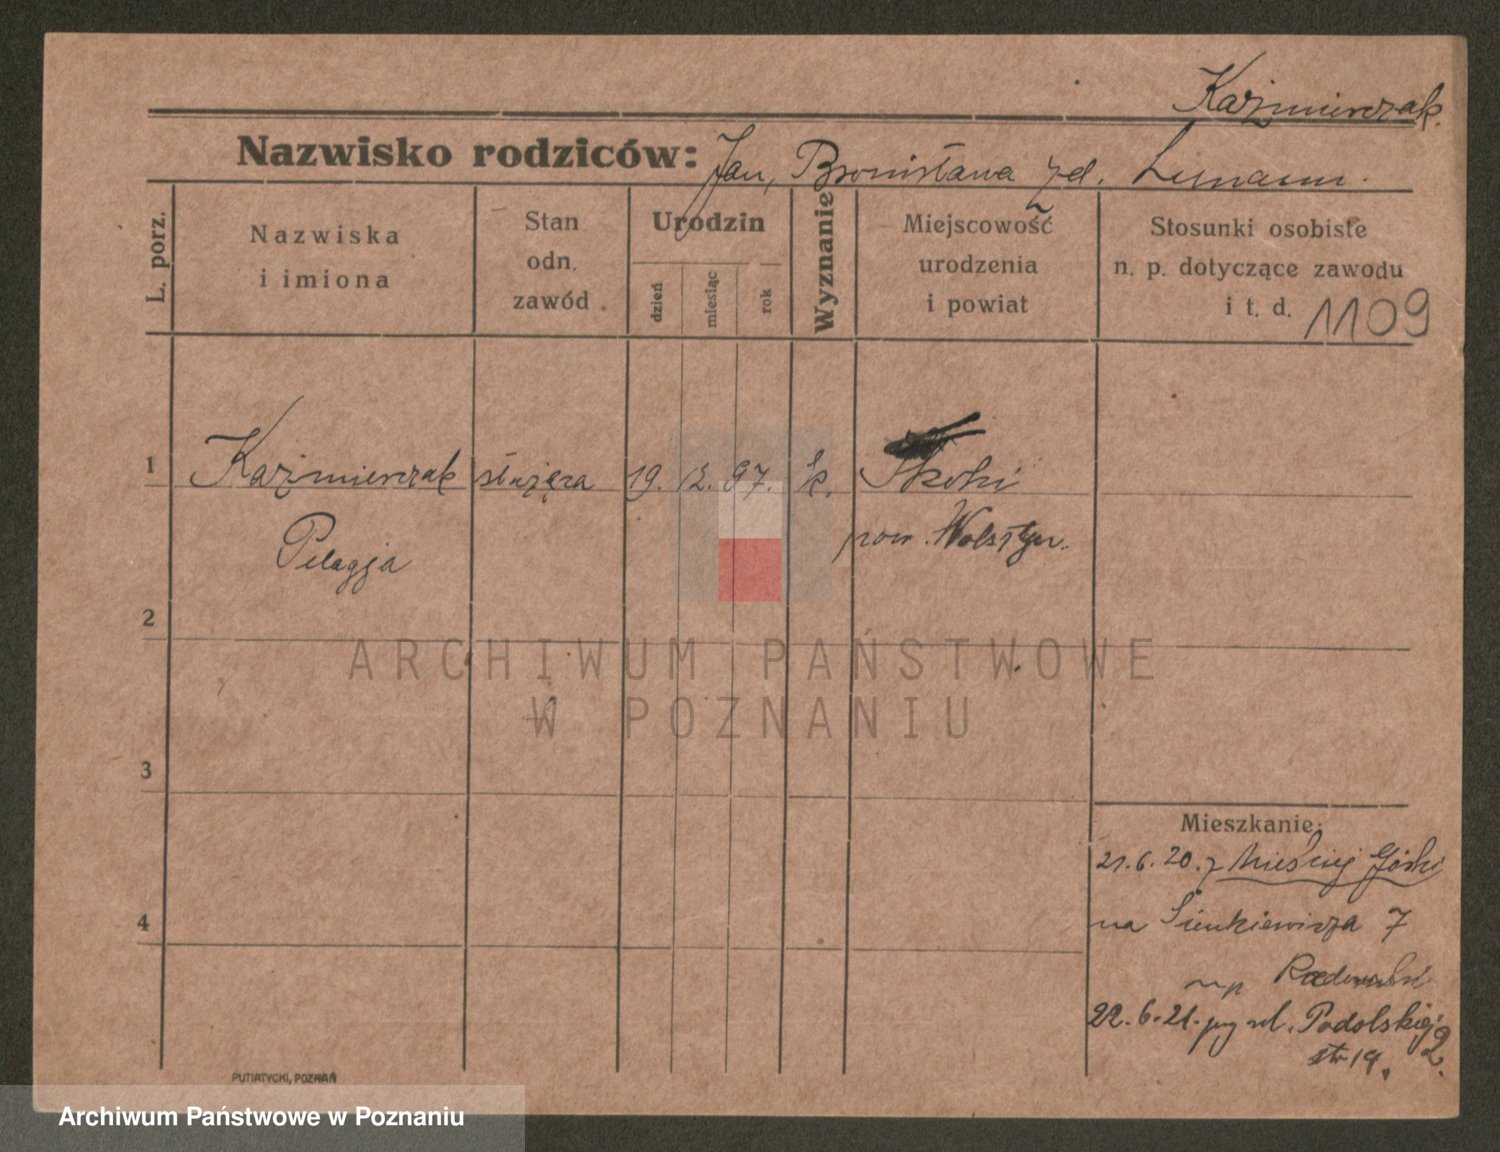 Kaźmierczak.
Nazwisko rodziców: Jan, Bronisława zd.
L. porz.
Nazwiska
i imiona
Stan
odn.
zawód
Urodzin
dzień
miesiąc
rok
Wyznanie
Miejscowość
urodzenia
i powiat
Stosunki osobiste
n. p. dotyczące zawodu
i t. d. 1109
1 Kaźmierczak służąca 19. 12. 97. k. Skoki
Pelagja pow. Wolsztyn.
2
3
4
ARCHIWUM PAŃSTWOWE
W POZNANIU
Mieszkanie:
21.6.20. z Górki
na Sienkiewicza 7
22.6.21. ul. Podolskiej 2.
str 19.
PUTIATYCKI, POZNAŃ
Archiwum Państwowe w Poznaniu